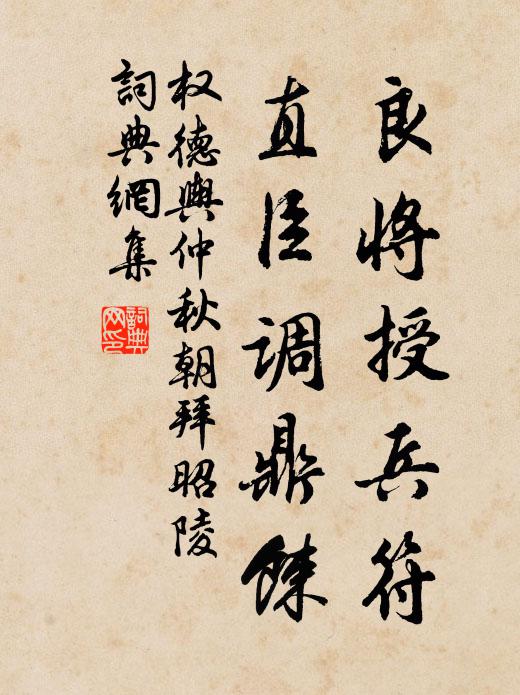 良将授兵符
直臣调鼎餗
权德舆仲秋朝拜昭陵
词典網集
词典网印